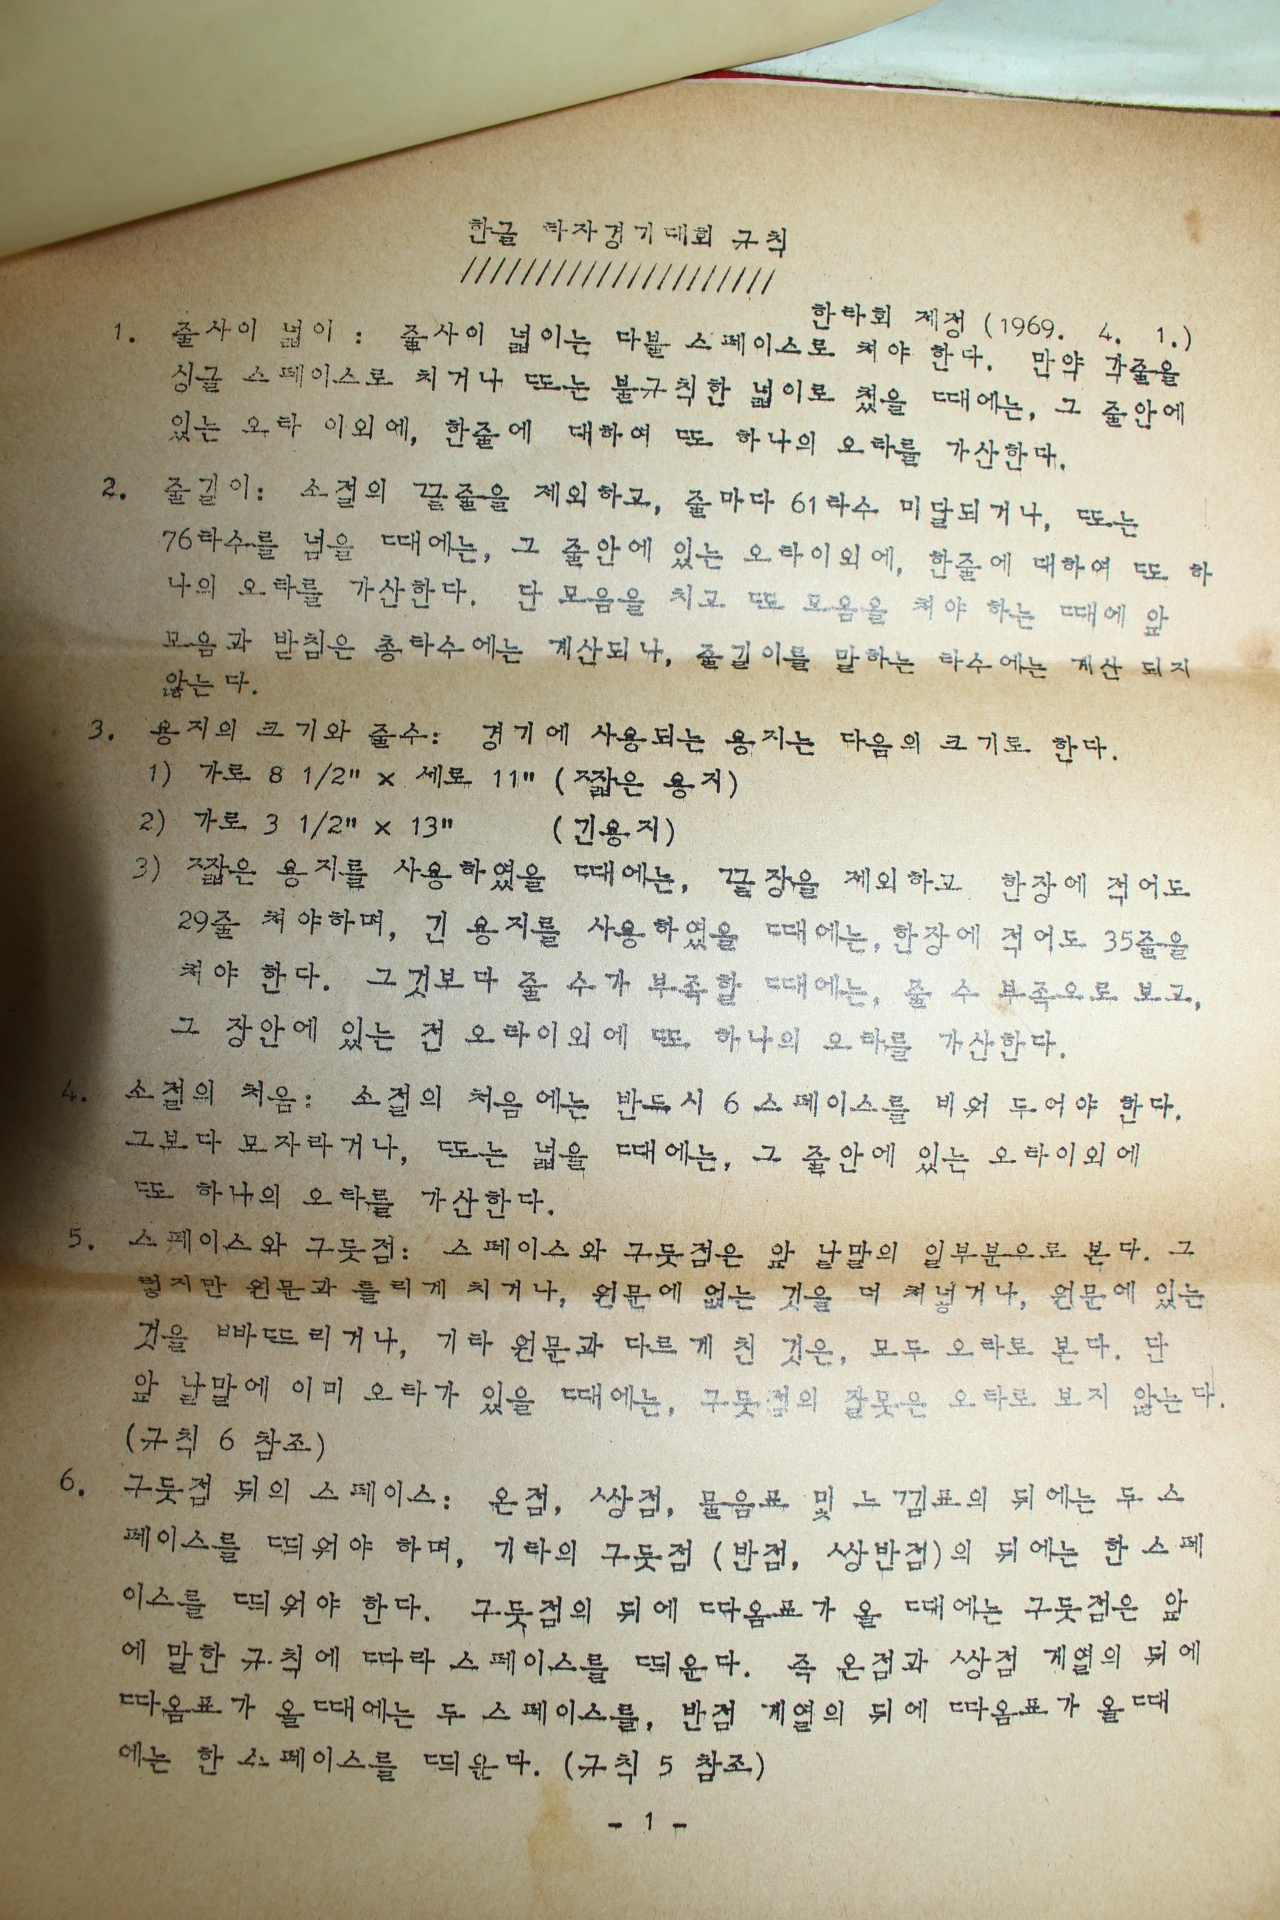 한글 타자경기대회 규칙
/////////////////////
한타회 제정 (1969. 4. 1.)
1. 줄사이 넓이 : 줄사이 넓이는 다불 스페이스로 쳐야 한다. 만약 각줄을
싱글 스페이스로 치거나 또는 불규칙한 넓이로 쳤을 때에는, 그 줄안에
있는 오타 이외에, 한줄에 대하여 또 하나의 오타를 가산한다.
2. 줄길이: 소절의 끝줄을 제외하고, 줄마다 61타수 미달되거나, 또는
76타수를 넘을 때에는, 그 줄안에 있는 오타이외에, 한줄에 대하여 또 하
나의 오타를 가산한다. 단 모음을 치고 또 모음을 쳐야 하는 때에 앞
모음과 받침은 총타수에는 계산되나, 줄길이를 말하는 타수에는 계산 되지
않는다.
3. 용지의 크기와 줄수: 경기에 사용되는 용지는 다음의 크기로 한다.
1) 가로 8 1/2" × 세로 11" (짧은 용지)
2) 가로 3 1/2" × 13" (긴용지)
3) 짧은 용지를 사용하였을 때에는, 끝장을 제외하고 한장에 적어도
29줄 쳐야하며, 긴 용지를 사용하였을 때에는, 한장에 적어도 35줄을
쳐야 한다. 그것보다 줄 수가 부족할 때에는, 줄 수 부족으로 보고,
그 장안에 있는 전 오타이외에 또 하나의 오타를 가산한다.
4. 소절의 처음: 소절의 처음에는 반드시 6 스페이스를 비워 두어야 한다.
그보다 모자라거나, 또는 넓을 때에는, 그 줄안에 있는 오타이외에
또 하나의 오타를 가산한다.
5. 스페이스와 구둣점: 스페이스와 구둣점은 앞 낱말의 일부분으로 본다. 그
렇지만 원문과 틀리게 치거나, 원문에 없는 것을 더 쳐넣거나, 원문에 있는
것을 빠뜨리거나, 기타 원문과 다르게 친 것은, 모두 오타로 본다. 단
앞 낱말에 이미 오타가 있을 때에는, 구둣점의 잘못은 오타로 보지 않는다.
(규칙 6 참조)
6. 구둣점 뒤의 스페이스: 온점, 쌍점, 물음표 및 느낌표의 뒤에는 두 스
페이스를 띄워야 하며, 기타의 구둣점 (반점, 쌍반점)의 뒤에는 한 스페
이스를 띄워야 한다. 구둣점의 뒤에 따옴표가 올 때에는 구둣점은 앞
에 말한 규칙에 따라 스페이스를 띄운다. 즉 온점과 쌍점 계열의 뒤에
따옴표가 올때에는 두 스페이스를, 반점 계열의 뒤에 따옴표가 올때
에는 한 스페이스를 띄운다. (규칙 5 참조)
- 1 -